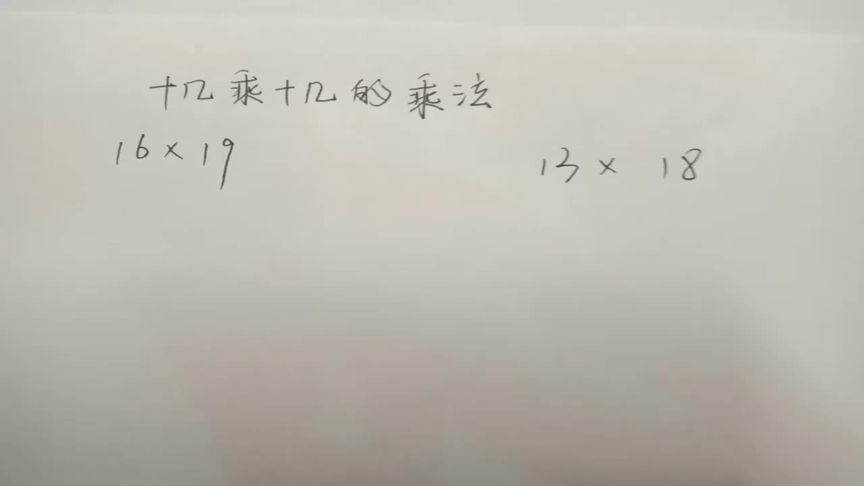 十几乘十几的乘法
16×19 13×18